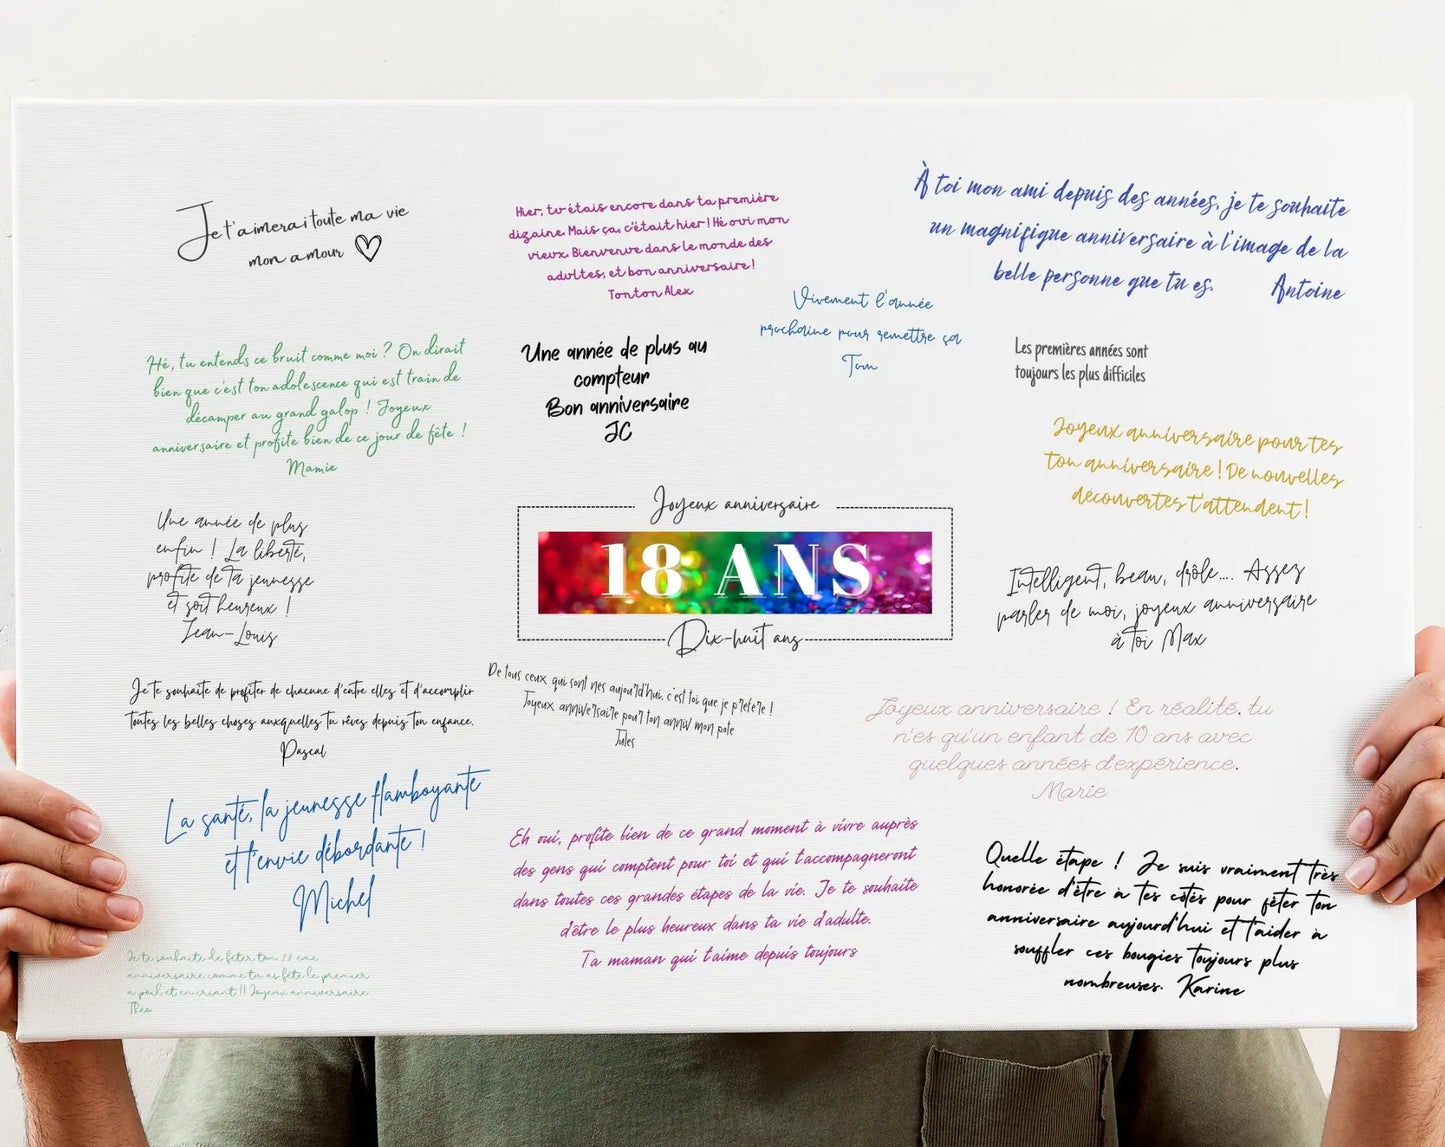 Je t'aimerai toute ma vie
mon amour
Hier, tu étais encore dans ta première
dizaine. Mais ça, c'était hier ! Hé oui mon
vieux. Bienvenue dans le monde des
adultes, et bon anniversaire !
Tonton Alex
À toi mon ami depuis des années, je te souhaite
un magnifique anniversaire à l'image de la
belle personne que tu es.
Antoine
Vivement l'année
prochaine pour remettre ça
Tom
Hé, tu entends ce bruit comme moi ? On dirait
bien que c'est ton adolescence qui est train de
décamper au grand galop ! Joyeux
anniversaire et profite bien de ce jour de fête !
Mamie
Une année de plus au
compteur
Bon anniversaire
JC
Les premières années sont
toujours les plus difficiles
Joyeux anniversaire pour tes
ton anniversaire ! De nouvelles
découvertes t'attendent !
Une année de plus
enfin ! La liberté,
profite de ta jeunesse
et soit heureux !
Jean-Louis
Joyeux anniversaire
18 ANS
Dix-huit ans
Intelligent, beau, drôle.... Assez
parler de moi, joyeux anniversaire
à toi Max
Je te souhaite de profiter de chacune d'entre elles et d'accomplir
toutes les belles choses auxquelles tu rêves depuis ton enfance.
Pascal
De tous ceux qui sont nes aujourd'hui, c'est toi que je préfère !
Joyeux anniversaire pour ton anniv mon pote
Jules
Joyeux anniversaire ! En réalité, tu
n'es qu'un enfant de 10 ans avec
quelques années d'expérience.
Marie
La santé, la jeunesse flamboyante
et l'envie débordante !
Michel
Eh oui, profite bien de ce grand moment à vivre auprès
des gens qui comptent pour toi et qui t'accompagneront
dans toutes ces grandes étapes de la vie. Je te souhaite
d'être le plus heureux dans ta vie d'adulte.
Ta maman qui t'aime depuis toujours
Quelle étape ! Je suis vraiment très
honorée d'être à tes côtés pour fêter ton
anniversaire aujourd'hui et t'aider à
souffler ces bougies toujours plus
nombreuses. Karine
Je te souhaite de fêter ton 18 eme
anniversaire comme tu as fêté le premier
a poil et en criant !! Joyeux anniversaire
Theo